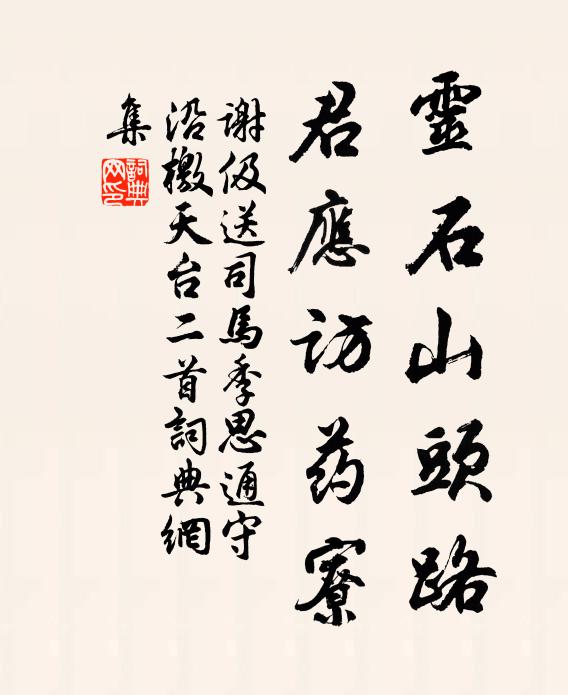 靈石山頭路
君應訪药寮
謝伋送司馬季思通守
沿檄天台二首詞典網
集
詞典
网印